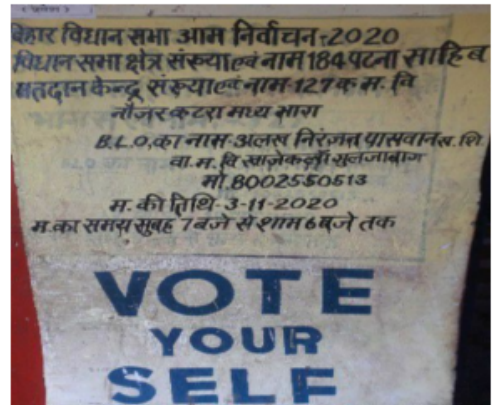 (प्रवेश)
बिहार विधान सभा आम निर्वाचन-2020
विधान सभा क्षेत्र संख्या एवं नाम 184 पटना साहिब
मतदान केन्द्र संख्या एवं नाम-127 क म. वि
नौजर कटरा मध्य भाग
B.L.O. का नाम-अलख निरंजन पासवान स. शि
वा. म. वि खाजेकलाँ गुलजाबाग
मो. 8002550513
म. की तिथि-3-11-2020
म. का समय सुबह 7 बजे से शाम 6 बजे तक
VOTE
YOUR
SELF